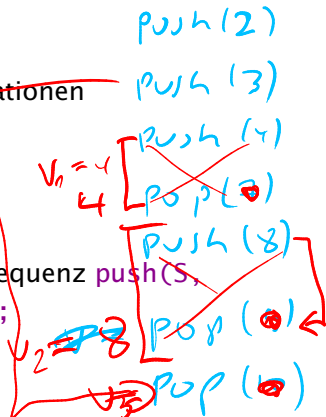 push(2)
ationen push(3)
push(4)
V₁ = 4
4 pop( )
push(8)
equenz push(S,
;
V₂ = 8 pop( )
pop( )